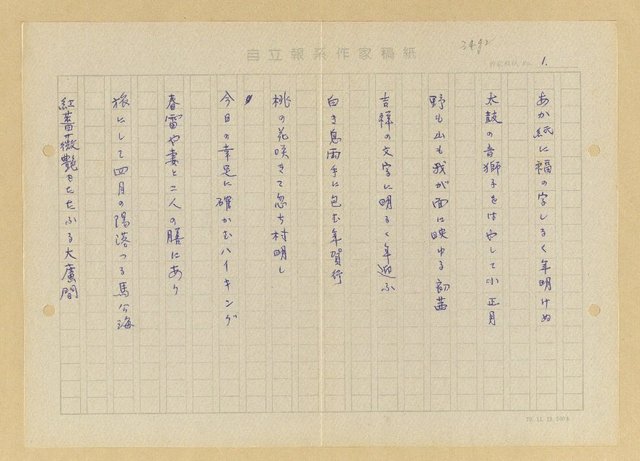 自立報系作家稿紙
34.92
1.
あか紙に福の字しるく年明けぬ
太鼓の音獅子をはやして小正月
野も山も我が面に映ゆる初茜
吉祥の文字に明るく年迎ふ
白き息両手に包む年賀行
桃の花咲きて忽ち村明し
今日の幸足に確かむハイキング
春雷や妻と二人の膳にあり
旅にして四月の陽落つる馬公海
紅薔薇艶をたたふる大廣間